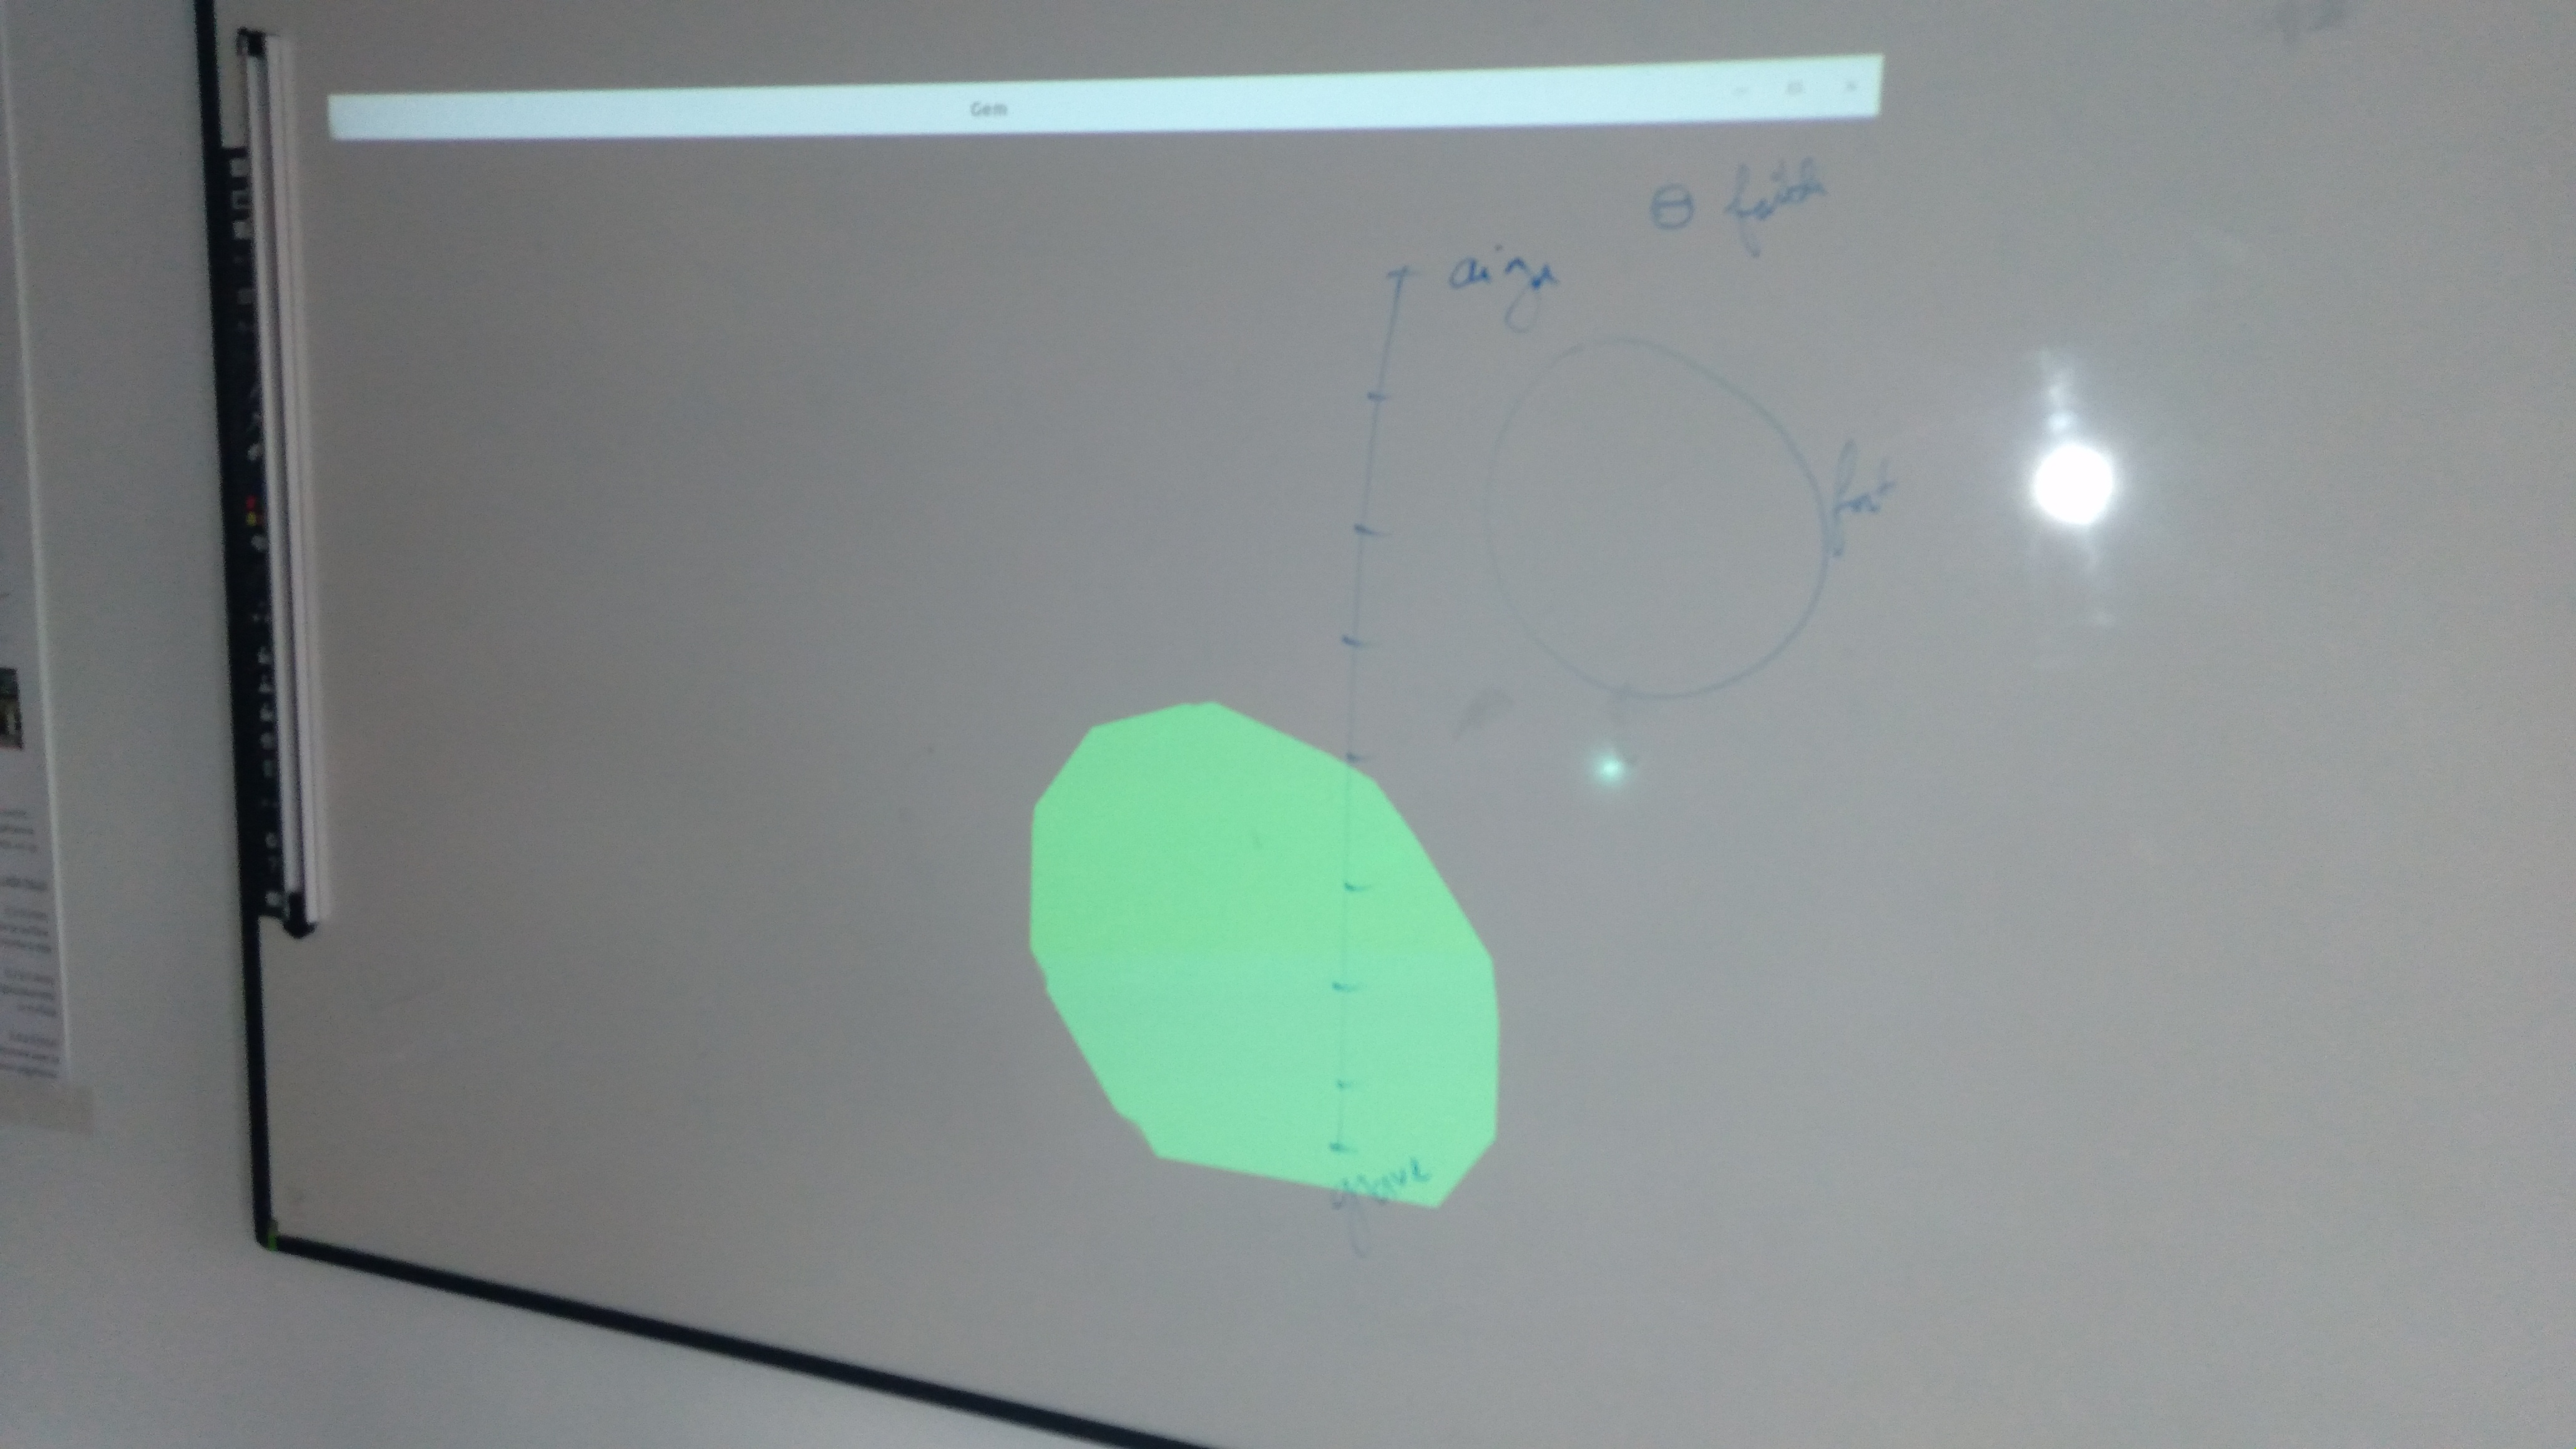 Gem
⊖ faible
aigu
fort
grave